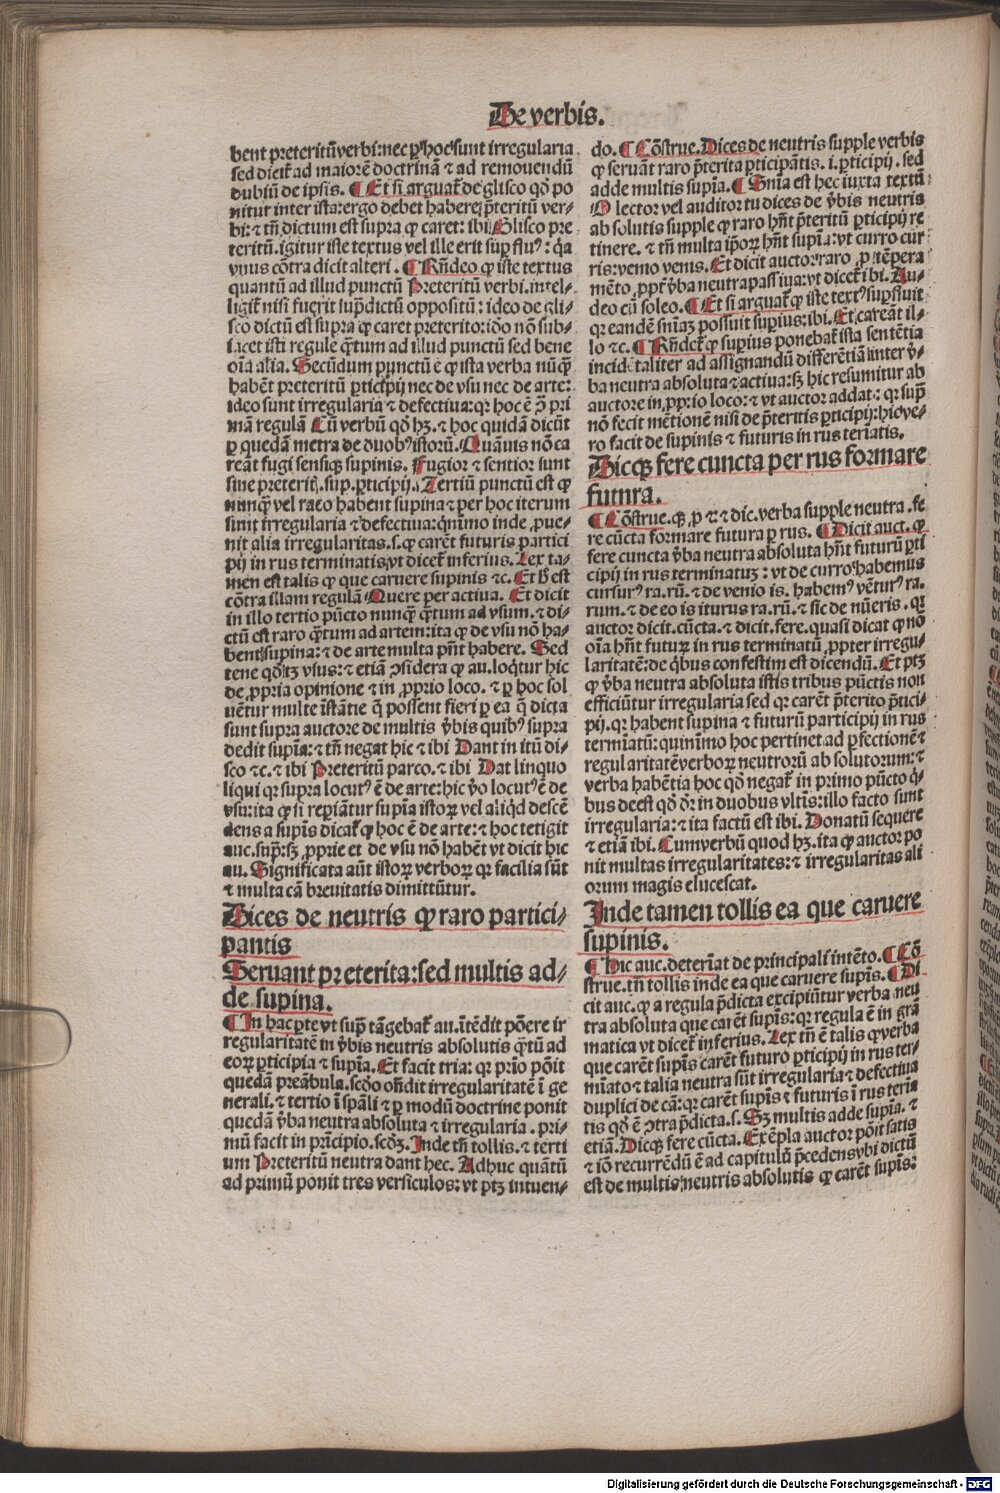 De verbis.
bent preteritū verbi: nec ꝑ hoc sunt irregularia
sed dicit᷑ ad maiorē doctrinā ⁊ ad remouendū
dubiū de ipsis. ¶ Et si arguat᷑ de glisco qd̄ po
nitur inter ista: ergo debet habere p̄teritū ver-
bi: ⁊ tn̄ dictum est supra ꝙ caret: ibi Glisco pre
teritū. igitur iste textus vel ille erit suꝑfluꝰ: q̄a
vnus cōtra dicit alteri. ¶ Rn̄deo ꝙ iste textus
quantū ad illud punctū Preteritū verbi. intel-
ligit᷑ nisi fuerit supͣdictū oppositū: ideo de gli-
sco dictū est supra ꝙ caret preterito: iđo nō sub-
iacet isti regule q̄tum ad illud punctū sed bene
oīa alia. Secūdum punctū ē ꝙ ista verba nūq̄
habēt preteritū ꝑticipij nec de vsu nec de arte:
ideo sunt irregularia ⁊ defectiua: qꝛ hoc ē ꝯ̄ pri
mā regulā Cū verbū qd̄ hꝫ. ⁊ hoc quidā dicūt
ꝑ quedā metra de duobꝰ istorū. Quāuis nō ca
reāt fugi sensiqꝫ supinis. Fugior ⁊ sentior sunt
sine preteritꝭ. sup. ꝑticipij. Tertiū punctū est ꝙ
nunq̄ vel raro habent supina ⁊ per hoc iterum
sunt irregularia ⁊ defectiua: qnīmo inde ꝓue-
nit alia irregularitas. s. ꝙ carēt futuris partici
pij in rus terminatis, vt dicet᷑ inferius. Lex ta-
men est talis ꝙ que caruere supinis ⁊c. Et h̄ est
cōtra illam regulā Quere per actiua. Et dicit
in illo tertio pūcto nunq̄ q̄tum ad vsum. ⁊ di-
ctū est raro q̄tum ad artem: ita ꝙ de vsu nō ha-
bent supina: ⁊ de arte multa pn̄t habere. Sed
tene qd̄ tꝫ vsus: ⁊ etiā ꝯsidera ꝙ au. loq̄tur hic
de ꝓpria opinione ⁊ in ꝓprio loco. ⁊ ꝑ hoc sol
uētur multe īstātie q̄ possent fieri ꝑ ea q̄ dicta
sunt supra auctore de multis v̄bis quibꝰ supra
dedit supīa: ⁊ tn̄ negat hic ⁊ ibi Dant in itū di-
sco ⁊c. ⁊ ibi Preteritū parco. ⁊ ibi Dat linquo
liqui qꝛ supra locutꝰ ē de arte: hic v̄o locutꝰ ē de
vsu: ita ꝙ si reꝑiātur supīa istoꝝ vel aliqd descē
dens a supīs dicat᷑ ꝙ hoc ē de arte: ⁊ hoc tetigit
auc. supͣ: sꝫ ꝓprie et de vsu nō habēt vt dicit hic
au. Significata aūt istoꝝ verboꝝ qꝛ facilia sūt
⁊ multa cā breuitatis dimittūtur.
Dices de neutris ꝙ raro partici-
pantis
Seruant preterita: sed multis ad-
de supina.
¶ In hac ꝑte vt supͣ tāgebat᷑ au. ītēdit pōere ir
regularitatē in v̄bis neutris absolutis q̄tū ad
eoꝝ ꝑticipia ⁊ supīa. Et facit tria: qꝛ prīo pōit
quedā preābula. scđo on̄dit irregularitatē ī ge
nerali. ⁊ tertio ī spāli ⁊ ꝑ modū doctrine ponit
quedā v̄ba neutra absoluta ⁊ irregularia. pri-
mū facit in prīcipio. scđꝫ. Inde tn̄ tollis. ⁊ terti
um Preteritū neutra dant hec. Adhuc quātū
ad primū ponit tres versiculos: vt ptꝫ intuen-
do. ¶ Cōstrue. Dices de neutris supple verbis
ꝙ seruāt raro p̄terita ꝑticipātis. i. ꝑticipij. sed
adde multis supīa. ¶ Snīa est hec iuxta textū
O lector vel auditor tu dices de v̄bis neutris
absolutis supple ꝙ raro hn̄t p̄teritū ꝑticipij re
tinere. ⁊ tn̄ multa ipoꝝ hn̄t supīa: vt curro cur
ris: venio venis. Et dicit auctor raro ꝓ tēpera
mēto, ꝓpt᷑ v̄ba neutra passiua: vt dicet᷑ ibi. Au-
deo cū soleo. ¶ Et si arguat᷑ ꝙ iste textꝰ suꝑfluit
qꝛ eandē snīaꝫ possuit supius: ibi. Et careāt il-
lo ⁊c. ¶ Rn̄det᷑ ꝙ supius ponebat᷑ ista sentētia
incidētaliter ad assignandū differētiā inter v̄-
ba neutra absoluta ⁊ actiua: sꝫ hic resumitur ab
auctore in ꝓprio loco: ⁊ vt auctor addat: qꝛ supͣ
nō fecit mētionē nisi de p̄teritis ꝑticipij: hic ve-
ro facit de supinis ⁊ futuris in rus teriatis.
Dicqꝫ fere cuncta per rus formare
futura.
¶ Cōstrue. qꝫ ꝓ ⁊ ⁊ dic. verba supple neutra. fe
re cūcta formare futura ꝑ rus. ¶ Dicit auct. ꝙ
fere cuncta v̄ba neutra absoluta hn̄t futurū ꝑti
cipij in rus terminatuꝫ: vt de curro habemus
cursurꝰ ra. rū. ⁊ de venio is. habemꝰ vētur ꝰ ra.
rum. ⁊ de eo is iturus ra. rū. ⁊ sic de nūeris. qꝛ
auctor dicit. cūcta. ⁊ dicit. fere. quasi dicat ꝙ nō
oīa hn̄t futurꝫ in rus terminatū ꝓpter irregu-
laritatē: de q̄bus confestim est dicendū. Et ptꝫ
ꝙ v̄ba neutra absoluta istis tribus pūctis non
efficiūtur irregularia sed qꝛ carēt p̄terito p̄tici-
pij. qꝛ habent supina ⁊ futurū participij in rus
termīatū: quinīmo hoc pertinet ad ꝑfectionē ⁊
regularitatē verboꝝ neutroꝝ absolutorum: ⁊
verba habētia hoc qd̄ negat᷑ in primo pūcto q̄-
bus deest qd̄ dr̄ in duobus vltīs: illo facto sunt
irregularia: ⁊ ita factū est ibi. Donatū sequere
⁊ etiā ibi. Cum verbū quod hꝫ. ita ꝙ auctor po
nit multas irregularitates: ⁊ irregularitas ali
orum magis elucescat.
Inde tamen tollis ea que caruere
supinis.
¶ Hic auc. determīat de principali intēto. ¶ Cō
strue. tn̄ tollis inde ea que caruere supīs. ¶ Di
cit auc. ꝙ a regula p̄dicta excipiūtur verba neu
tra absoluta que carēt supīs: qꝛ regula ē in grā
matica vt dicet᷑ inferius. Lex tn̄ ē talis ꝙ verba
que carēt supīs carēt futuro ꝑticipij in rus ter-
mīato ⁊ talia neutra sūt irregularia ⁊ defectiua
duplici de cā: qꝛ carēt supīs ⁊ futuris ī rus teria
tis qd̄ ē ꝯtra p̄dicta. s. Sꝫ multis adde supīa. ⁊
etiā. Dicqꝫ fere cūcta. Exēpla auctor pōit satis
⁊ iō recurrēdū ē ad capitulū p̄cedens vbi dictū
est de multis neutris absolutis ꝙ carēt supīs:
Digitalisierung gefördert durch die Deutsche Forschungsgemeinschaft - DFG